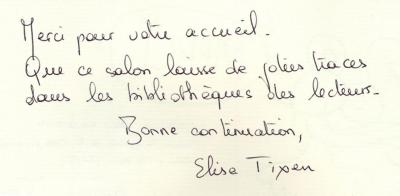 Merci pour votre accueil.
Que ce salon laisse de jolies traces
dans les bibliothèques des lecteurs.
Bonne continuation,
Elisa Tixen